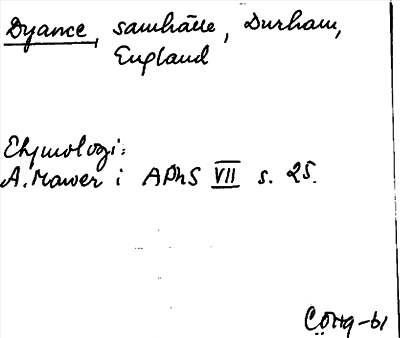 Dyance, samhälle, Durham,
England
Etymologi:
A. Mawer i APhS VII s. 25.